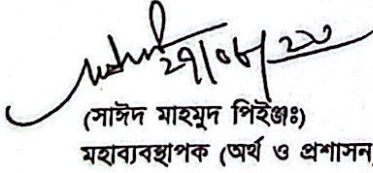 ২৭/০৮/২০
(সাঈদ মাহমুদ পিইঞ্জঃ)
মহাব্যবস্থাপক (অর্থ ও প্রশাসন